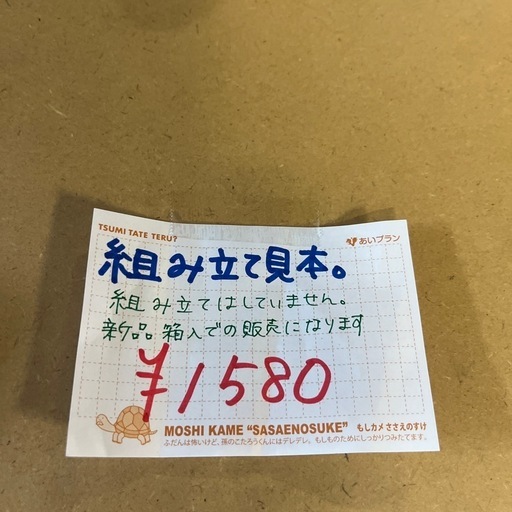 TSUMI TATE TERU?
あいプラン
組み立て見本。
組み立てはしていません。
新品箱入での販売になります
¥1580
MOSHI KAME "SASAENOSUKE" もしカメ ささえのすけ
ふだんは怖いけど、孫のこたろうくんにはデレデレ。もしものためにしっかりつみたてます。